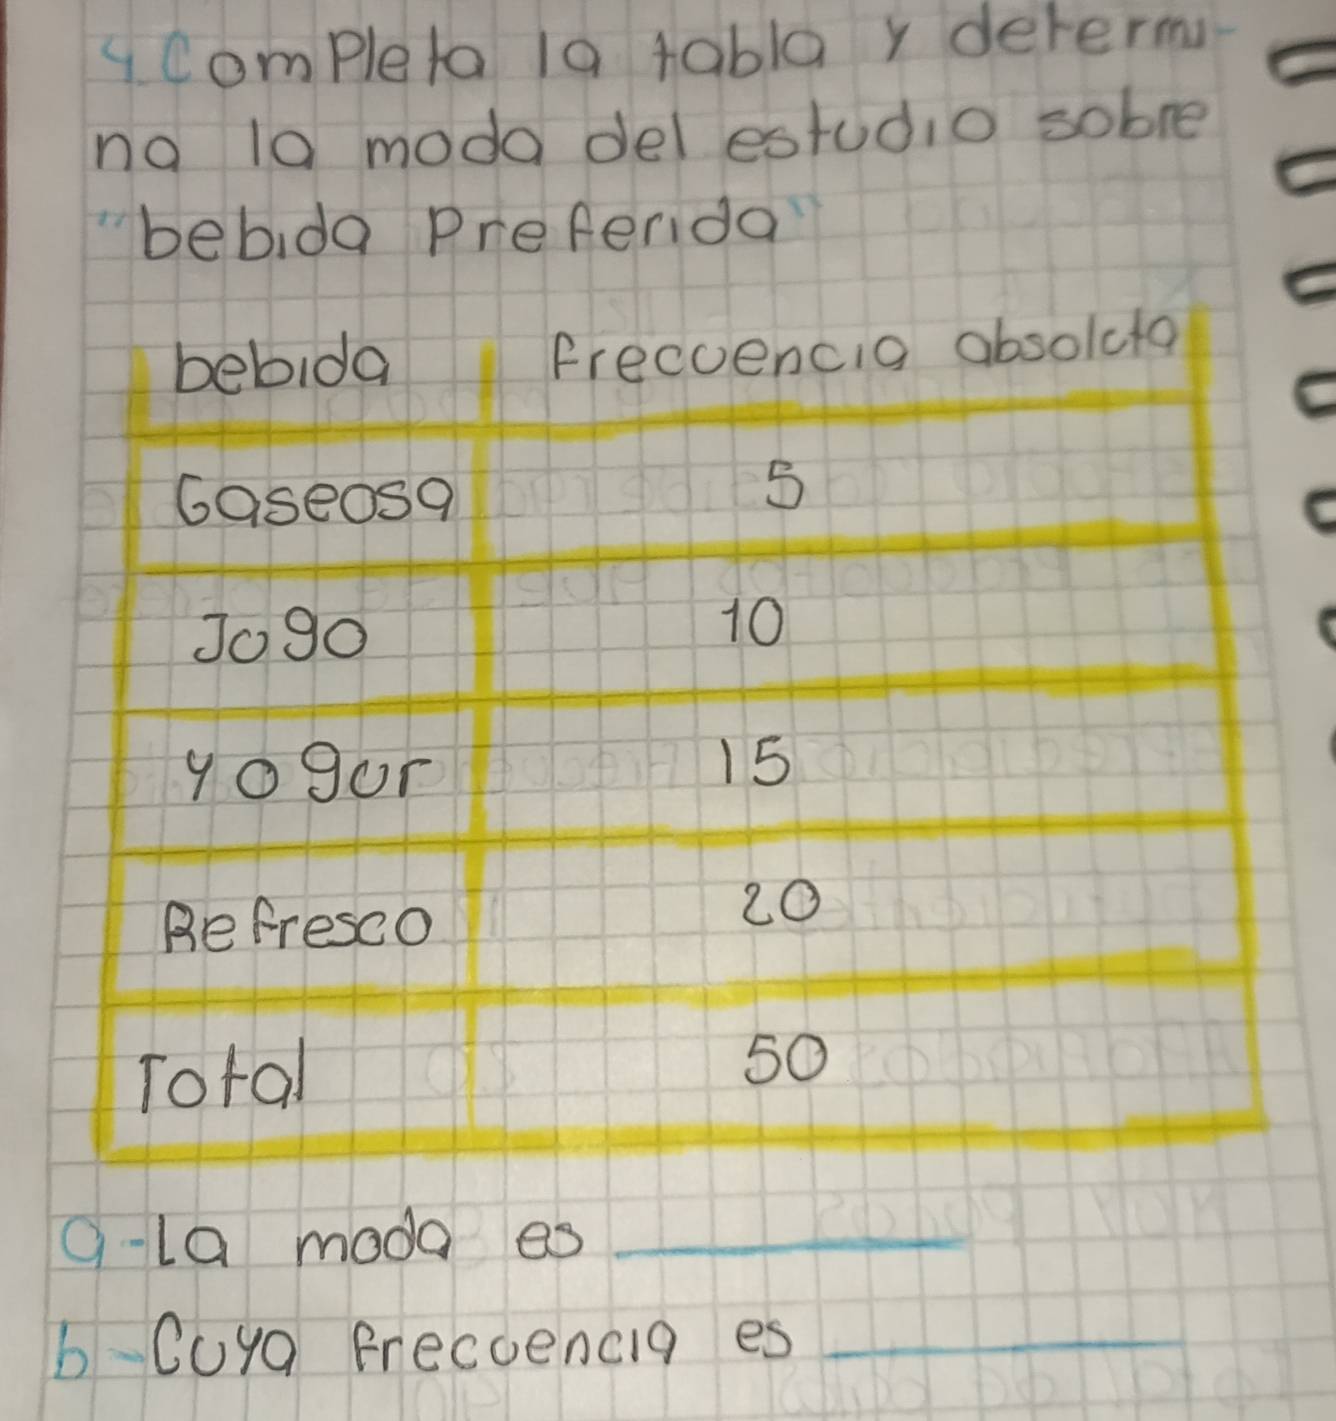 4. Completa la tabla y determi-
na la moda del estudio sobre
"bebida preferida"
bebida frecuencia absoluta
Gaseosa 5
Jugo 10
yogur 15
Refresco 20
Total 50
a- La moda es
b- Cuya frecuencia es